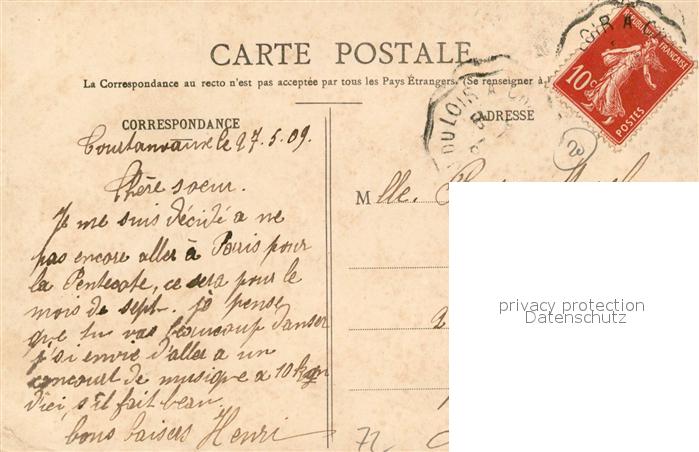 CARTE POSTALE
La Correspondance au recto n'est pas acceptée par tous les Pays Étrangers. (Se renseigner à
CORRESPONDANCE
ADRESSE
RÉPUBLIQUE FRANÇAISE
10c
POSTES
le 27.5.09.
Chère soeur.
Mlle.
Je me suis décidé a ne
pas encore aller à Paris pour
la Pentecote, ce sera pour le
mois de sept. je pense
que tu vas beaucoup danser
j'ai envie d'aller a un
concourt de musique a 10
d'ici, s'il fait beau.
bons baisers Henri
72
privacy protection
Datenschutz